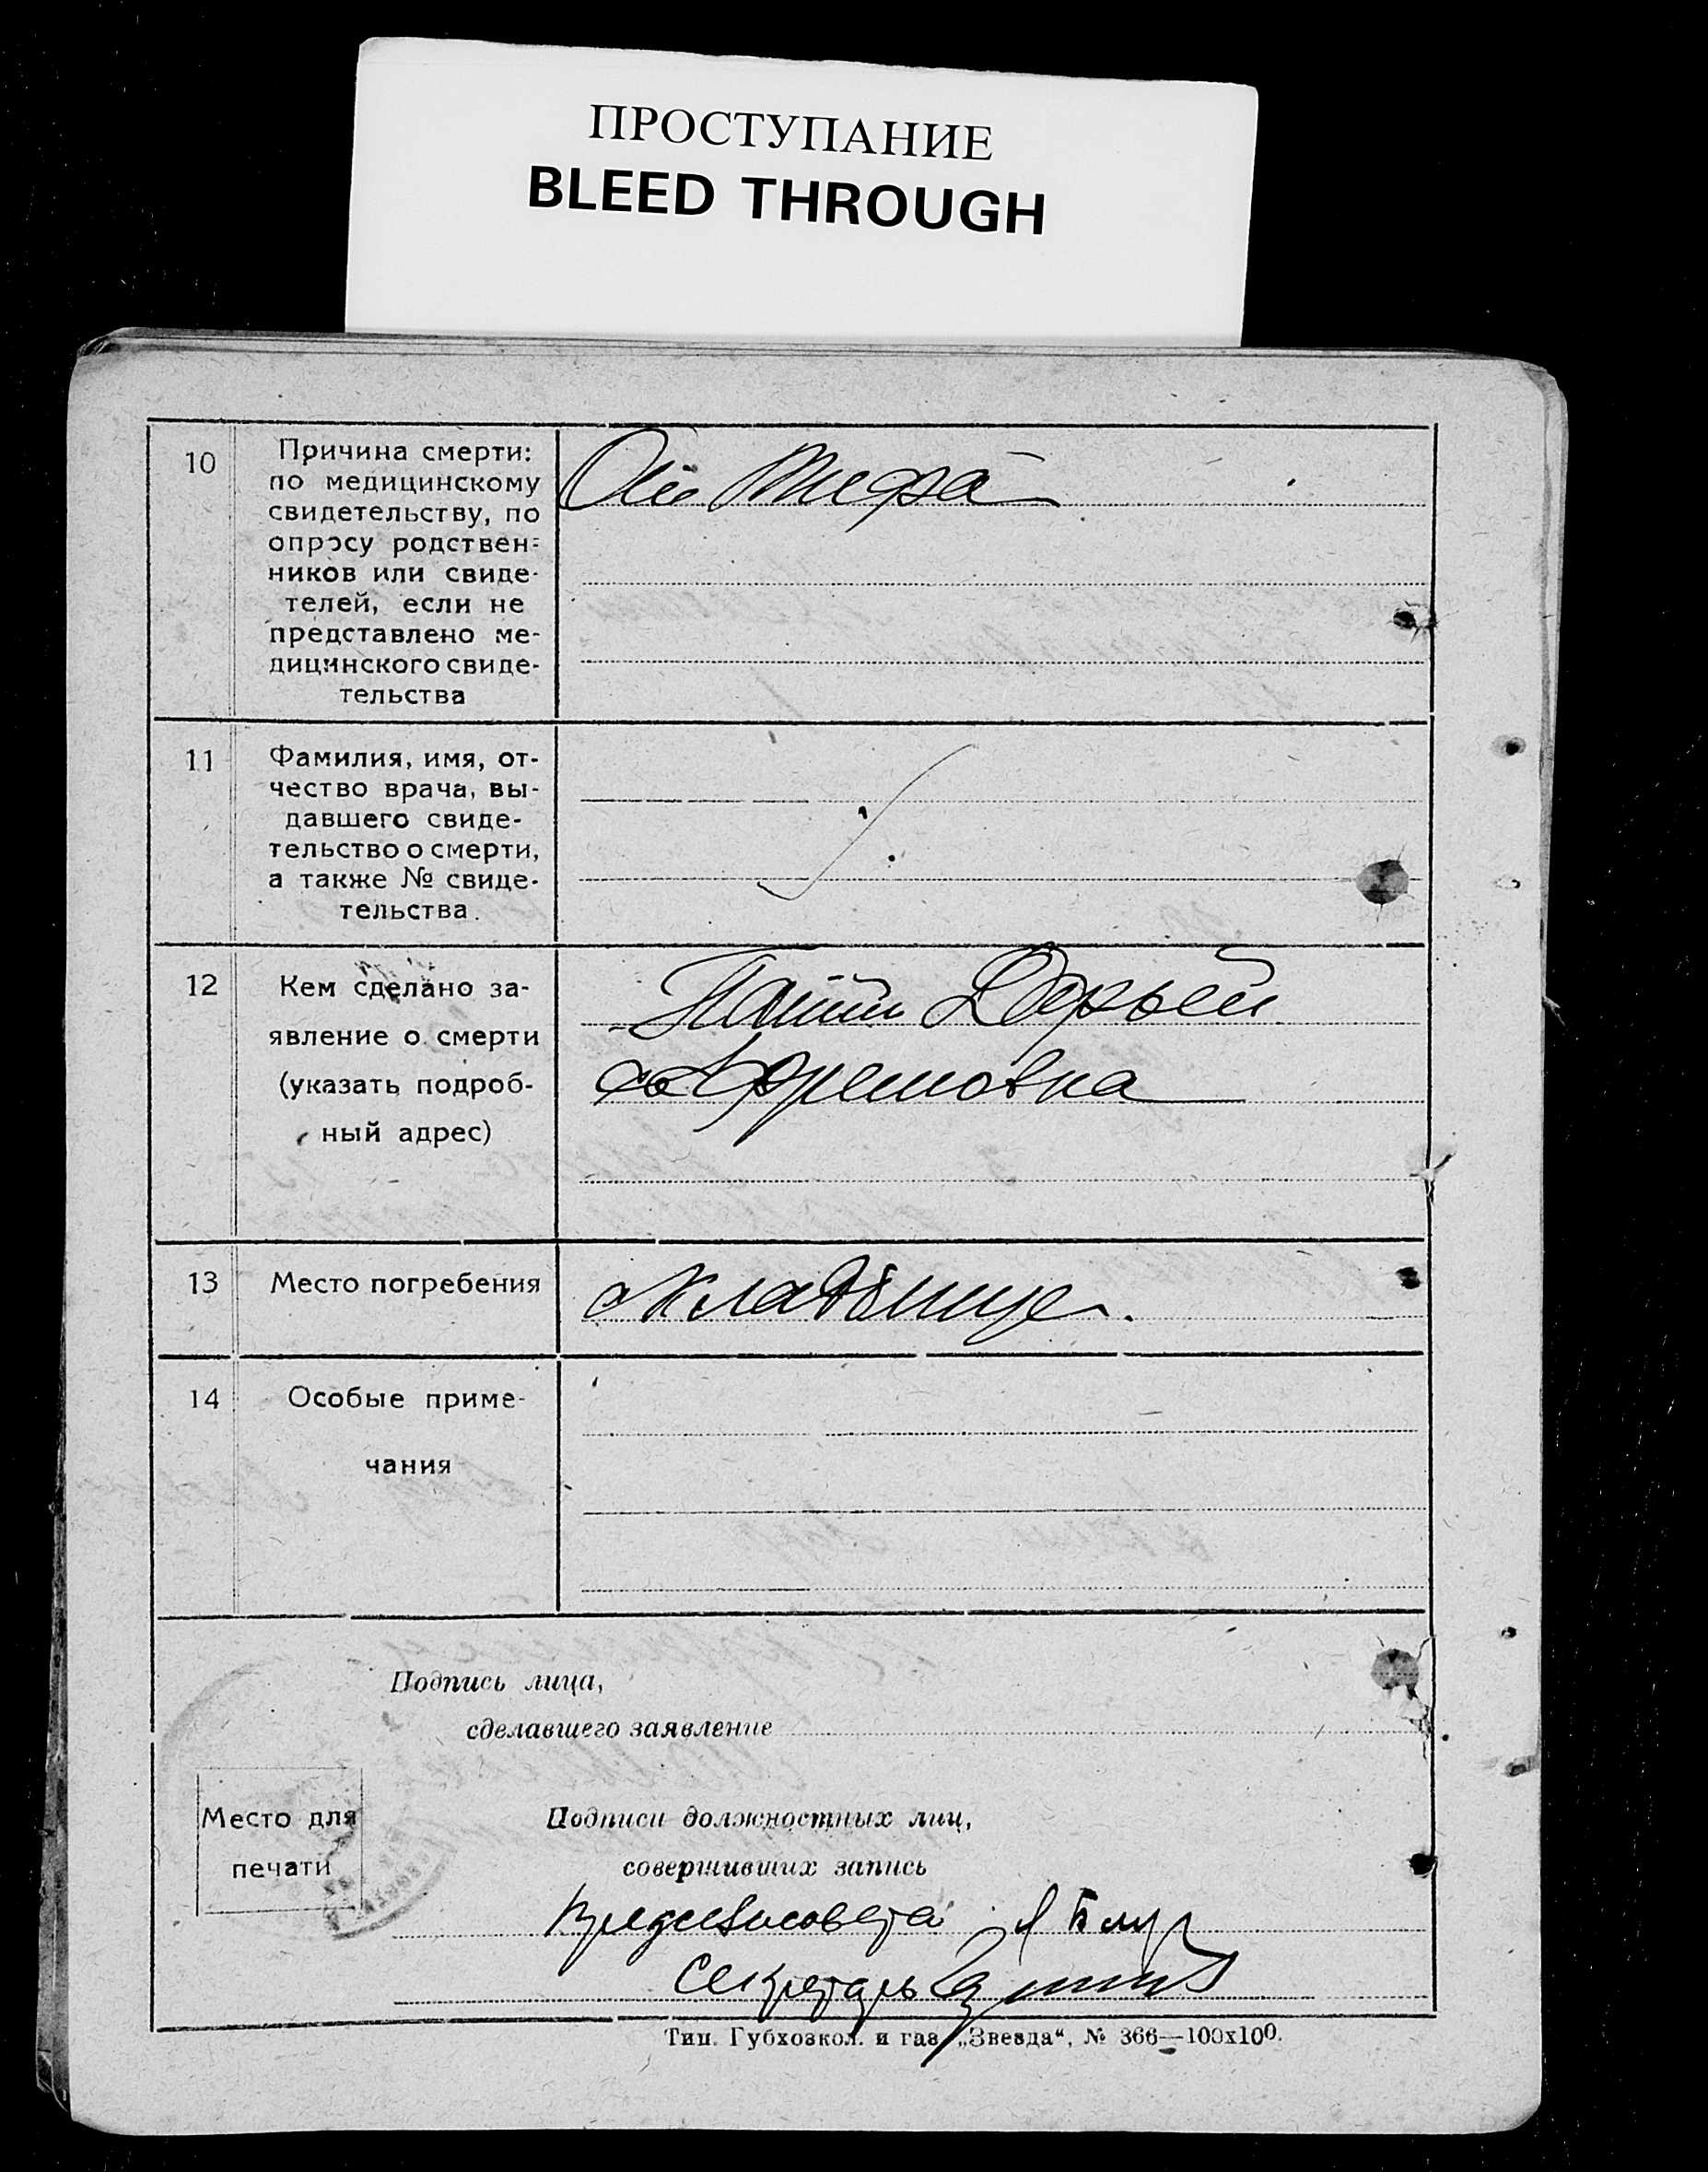 ПРОСТУПАНИЕ
BLEED THROUGH
10
Причина смерти:
по медицинскому
свидетельству, по
опросу родствен-
ников или свиде-
телей, если не
представлено ме-
дицинского свиде-
тельства
От Тифа
11
Фамилия, имя, от-
чество врача, вы-
давшего свиде-
тельство о смерти,
а также № свиде-
тельства.
12
Кем сделано за-
явление о смерти
(указать подроб-
ный адрес)
Дарьей
13
Место погребения
Кладбище.
14
Особые приме-
чания
Подпись лица,
сделавшего заявление
Место для
печати
Подписи должностных лиц,
совершивших запись
Предсельсовета
Секретарь
Тип. Губхозкол. и газ. „Звезда“, № 366—100х100.